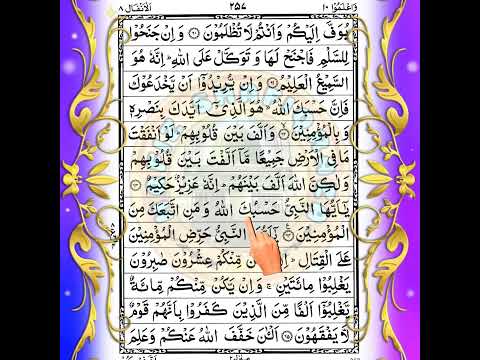 وَاعْلَمُوْٓا ١٠ ٢٥٧ اَلْاَنْفَال ٨
يُوَفَّ اِلَيْكُمْ وَاَنْتُمْ لَا تُظْلَمُوْنَ ۝٦٠ وَ اِنْ جَنَحُوْا
لِلسَّلْمِ فَاجْنَحْ لَهَا وَ تَوَكَّلْ عَلَى اللّٰهِ ؕ اِنَّهٗ هُوَ
السَّمِيْعُ الْعَلِيْمُ ۝٦١ وَ اِنْ يُّرِيْدُوْٓا اَنْ يَّخْدَعُوْكَ
فَاِنَّ حَسْبَكَ اللّٰهُ ؕ هُوَ الَّذِيْٓ اَيَّدَكَ بِنَصْرِهٖ
وَ بِالْمُؤْمِنِيْنَ ۝٦٢ وَ اَلَّفَ بَيْنَ قُلُوْبِهِمْ ؕ لَوْ اَنْفَقْتَ
مَا فِي الْاَرْضِ جَمِيْعًا مَّاۤ اَلَّفْتَ بَيْنَ قُلُوْبِهِمْ
وَ لٰكِنَّ اللّٰهَ اَلَّفَ بَيْنَهُمْ ؕ اِنَّهٗ عَزِيْزٌ حَكِيْمٌ ۝٦٣
يٰۤاَيُّهَا النَّبِيُّ حَسْبُكَ اللّٰهُ وَ مَنِ اتَّبَعَكَ مِنَ
الْمُؤْمِنِيْنَ ۝٦٤ يٰۤاَيُّهَا النَّبِيُّ حَرِّضِ الْمُؤْمِنِيْنَ
عَلَى الْقِتَالِ ؕ اِنْ مِّنْكُمْ عِشْرُوْنَ صٰبِرُوْنَ
يَغْلِبُوْا مِائَتَيْنِ ۚ وَ اِنْ يَّكُنْ مِّنْكُمْ مِّائَةٌ
يَّغْلِبُوْۤا اَلْفًا مِّنَ الَّذِيْنَ كَفَرُوْا بِاَنَّهُمْ قَوْمٌ
لَّا يَفْقَهُوْنَ ۝٦٥ اَلْـٰٔنَ خَفَّفَ اللّٰهُ عَنْكُمْ وَ عَلِمَ